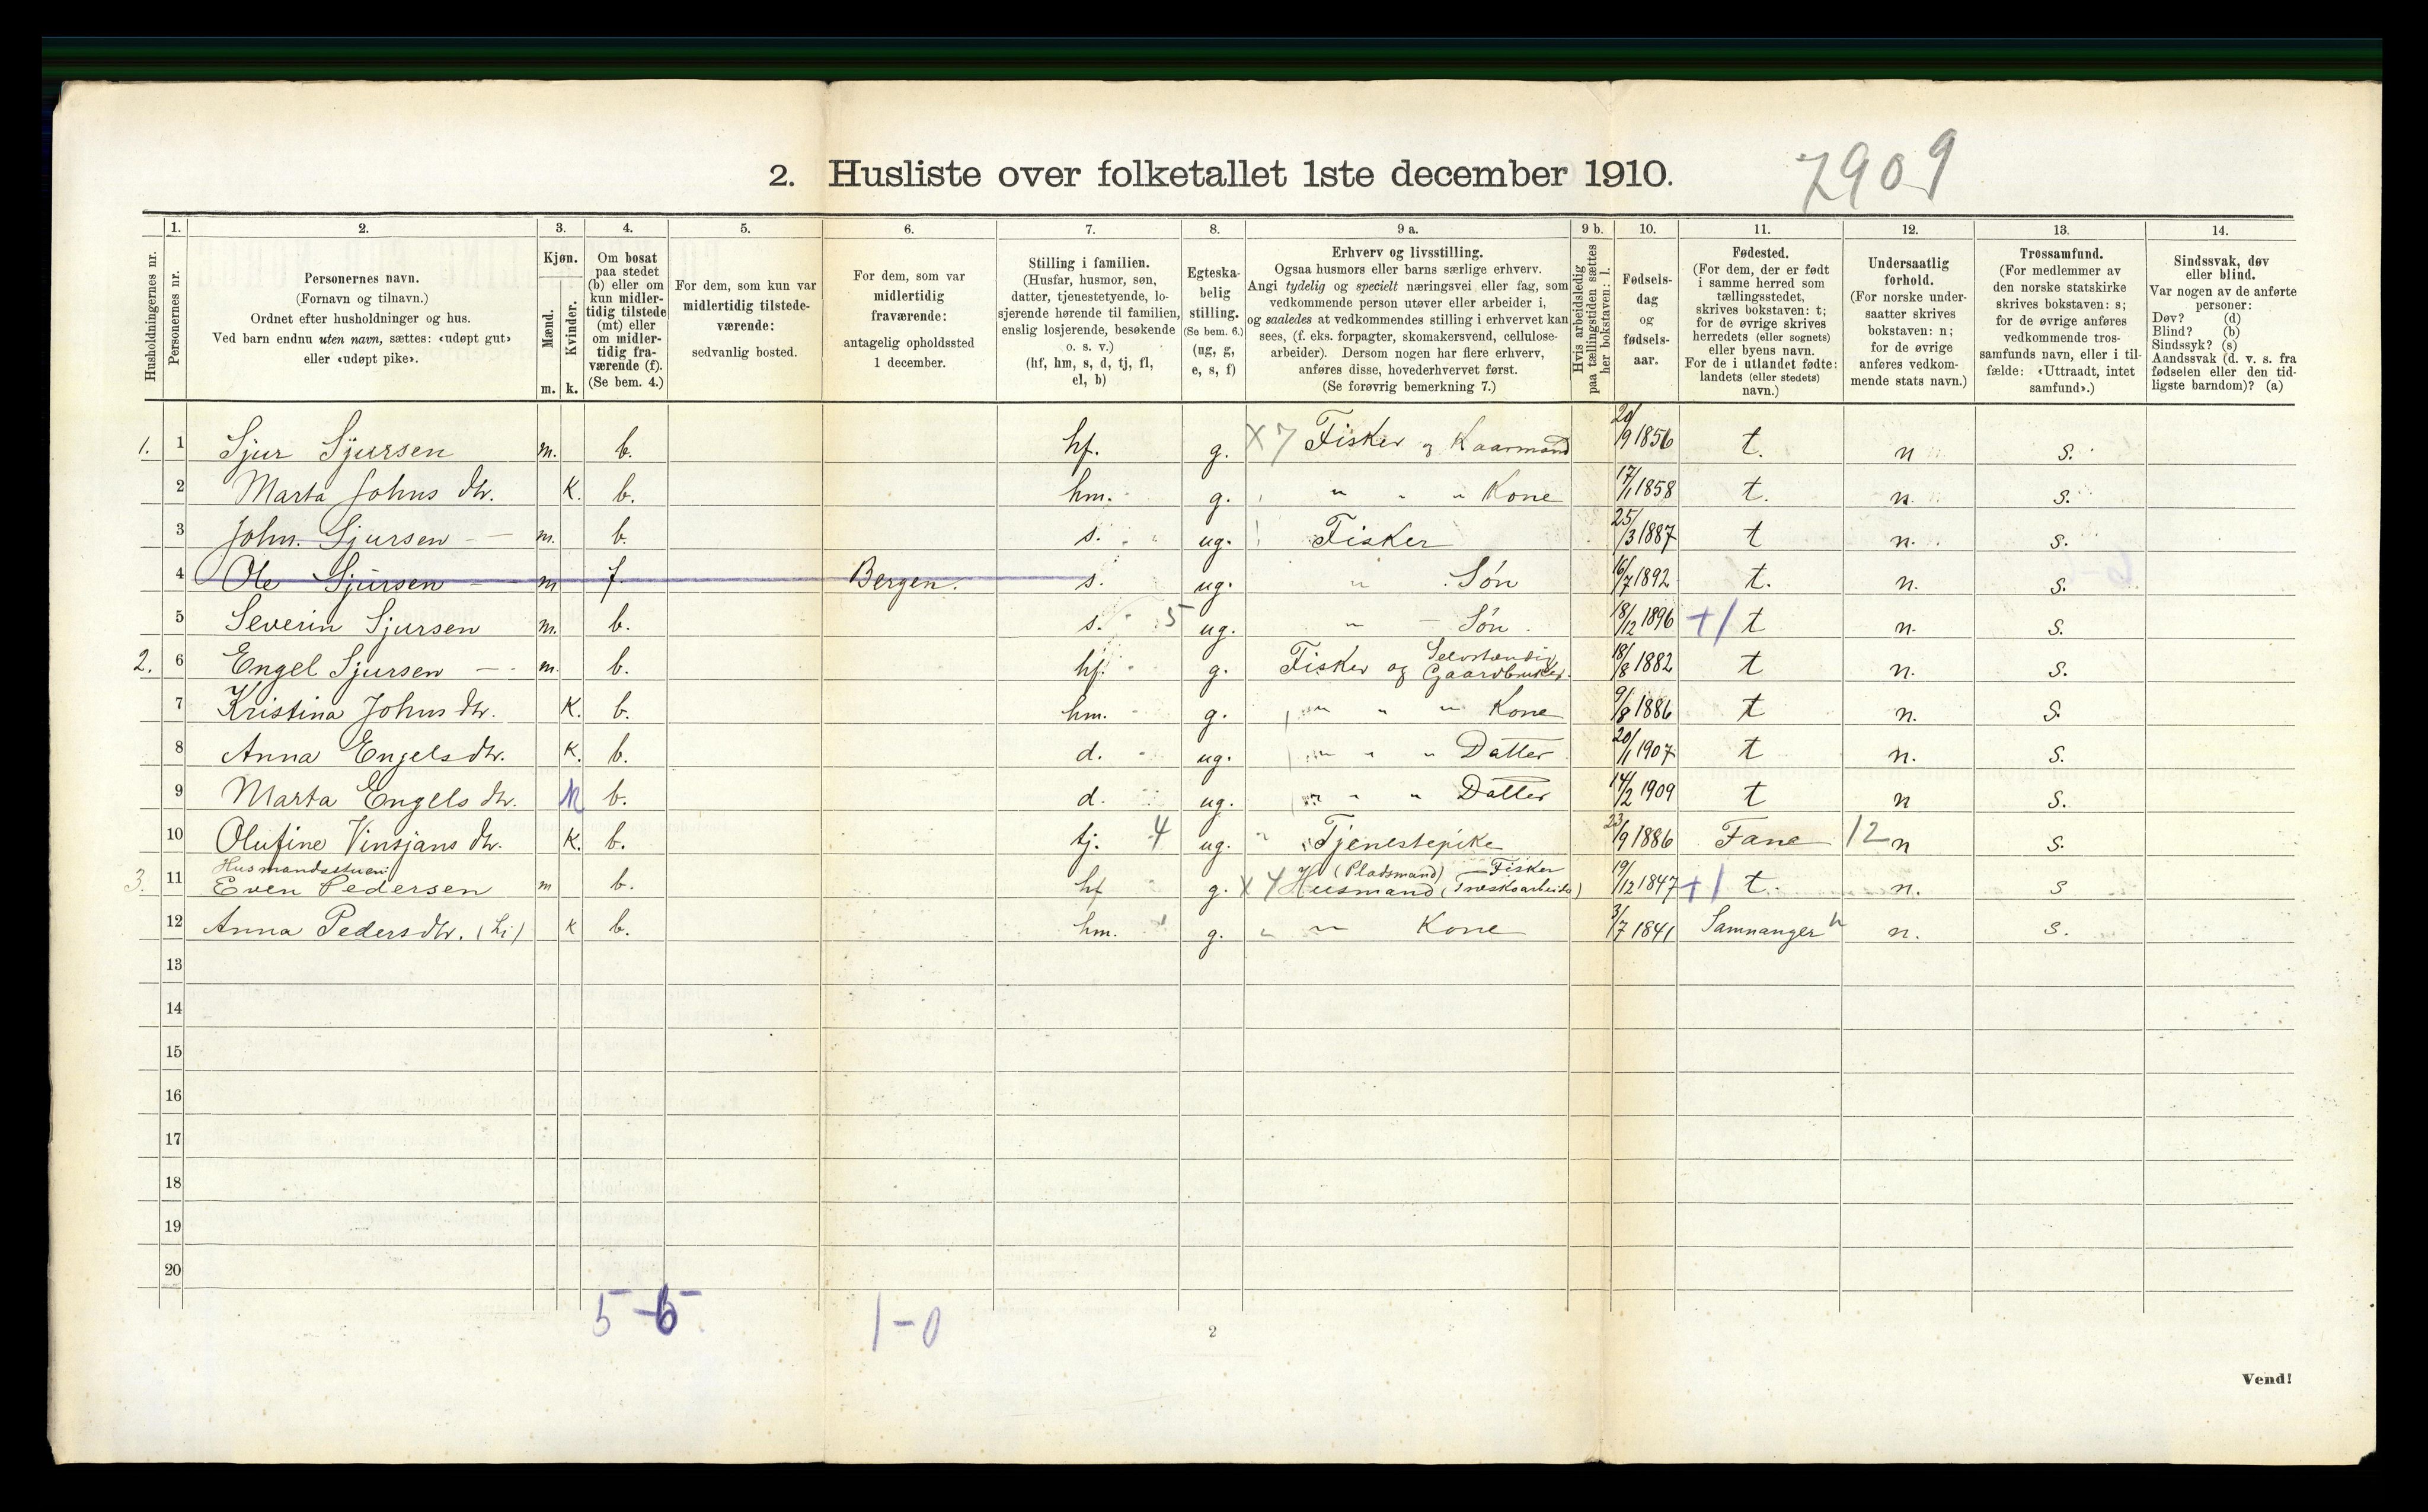 2. Husliste over folketallet 1ste december 1910.
7909
1. 2. 3. 4. 5. 6. 7. 8. 9 a. 9 b. 10. 11. 12. 13. 14.
Husholdningernes nr.
Personernes nr.
Personernes navn.
(Fornavn og tilnavn.)
Ordnet efter husholdninger og hus.
Ved barn endnu uten navn, sættes: «udøpt gut»
eller «udøpt pike».
Kjøn.
Mænd.
Kvinder.
m. k.
Om bosat
paa stedet
(b) eller om
kun midler-
tidig tilstede
(mt) eller
om midler-
tidig fra-
værende (f).
(Se bem. 4.)
For dem, som kun var
midlertidig tilstede-
værende:
sedvanlig bosted.
For dem, som var
midlertidig
fraværende:
antagelig opholdssted
1 december.
Stilling i familien.
(Husfar, husmor, søn,
datter, tjenestetyende, lo-
sjerende hørende til familien,
enslig losjerende, besøkende
o. s. v.)
(hf, hm, s, d, tj, fl,
el, b)
Egteska-
belig
stilling.
(Se bem. 6.)
(ug, g,
e, s, f)
Erhverv og livsstilling.
Ogsaa husmors eller barns særlige erhverv.
Angi tydelig og specielt næringsvei eller fag, som
vedkommende person utøver eller arbeider i,
og saaledes at vedkommendes stilling i erhvervet kan
sees, (f. eks. forpagter, skomakersvend, cellulose-
arbeider). Dersom nogen har flere erhverv,
anføres disse, hovederhvervet først.
(Se forøvrig bemerkning 7.)
Hvis arbeidsledig
paa tællingstiden sættes
her bokstaven: l.
Fødsels-
dag
og
fødsels-
aar.
Fødested.
(For dem, der er født
i samme herred som
tællingsstedet,
skrives bokstaven: t;
for de øvrige skrives
herredets (eller sognets)
eller byens navn.
For de i utlandet fødte:
landets (eller stedets)
navn.)
Undersaatlig
forhold.
(For norske under-
saatter skrives
bokstaven: n;
for de øvrige
anføres vedkom-
mende stats navn.)
Trossamfund.
(For medlemmer av
den norske statskirke
skrives bokstaven: s;
for de øvrige anføres
vedkommende tros-
samfunds navn, eller i til-
fælde: «Uttraadt, intet
samfund».)
Sindssvak, døv
eller blind.
Var nogen av de anførte
personer:
Døv? (d)
Blind? (b)
Sindssyk? (s)
Aandssvak (d. v. s. fra
fødselen eller den tid-
ligste barndom)? (a)
1. 1 Sjur Sjursen m. b. hf. g. X 7 Fisker og Kaarmand 20/9 1856 t. n s.
2 Marta Johns dtr. K. b. hm. g. " " " Kone 17/1 1858 t. n. s.
3 John. Sjursen — m. b. s. ug. Fisker 25/3 1887 t n. s.
4 Ole Sjursen — m f. Bergen. s. ug. " Søn 16/7 1892 t. n. s.
5 Severin Sjursen m. b. s. 5 ug. " — Søn. 18/12 1896 +1 t n. s.
2. 6 Engel Sjursen — m. b. hf. g. Fisker og Selvstændig Gaardbruker. 18/8 1882 t n. s.
7 Kristina Johns dtr. K. b. hm. g. " " " Kone 9/8 1886 t n. s.
8 Anna Engelsdtr. K. b. d. ug. " " " Datter 20/1 1907 t n. s.
9 Marta Engels dtr. k b. d. ug. " " " Datter 14/2 1909 t n s.
10 Olufine Vinsjans dtr. K. b. tj. 4 ug. " Tjenestepike 23/9 1886 Fane 12 n s.
Husmandsstuen
3. 11 Even Pedersen m b. hf g. X 4 Husmand (Pladsmand) — Fisker (Træskoarbeider) 19/12 1847 +1 t. n. s
12 Anna Pedersdtr. (Li) k b. hm. g. " " Kone 3/7 1841 Samnanger n. s.
13
14
15
16
17
18
19
20
5-6 1-0
2
Vend!